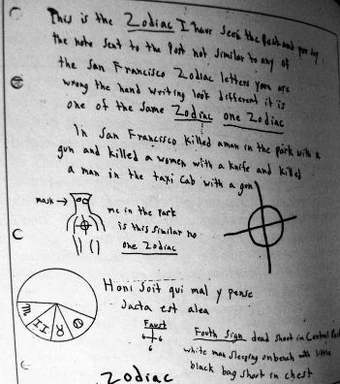 This is the Zodiac I have seen the Post and you say
the note sent to the Post not similar to any of
the San Francisco Zodiac letters you are
wrong the hand writing look different it is
one of the same Zodiac one Zodiac
In San Francisco killed a man in the park with a
gun and killed a women with a knife and killed
a man in the taxi cab with a gun
mask →
me in the park
is this similar no
one Zodiac
Honi soit qui mal y pense
Jacta est alea
Faust
6
6
Fourth Sign dead shoot in Central Park
white man sleeping on bench with little
black bag shoot in chest
Zodiac